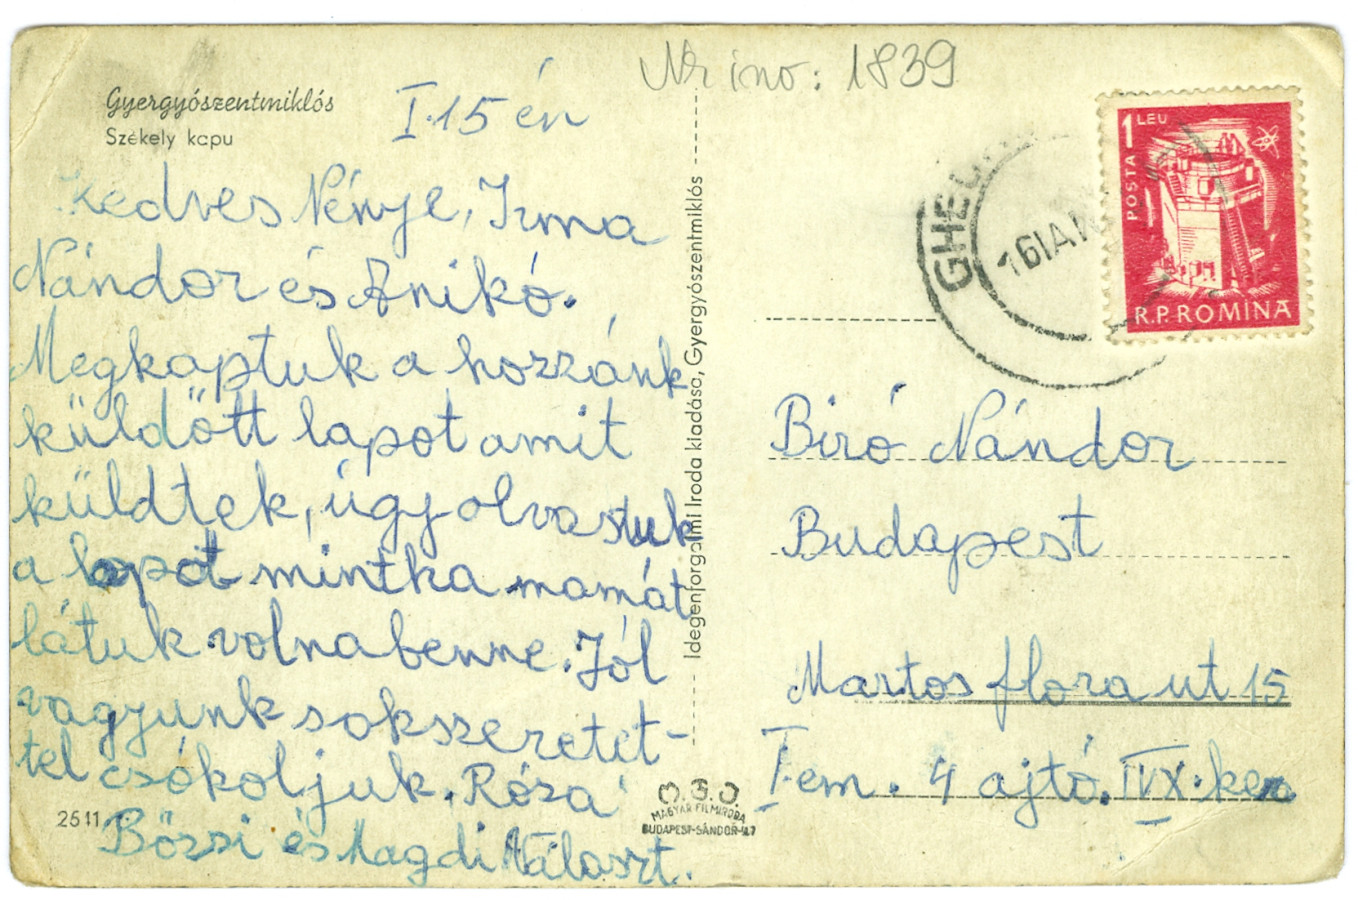 Nr ino: 1839
Gyergyószentmiklós
Székely kapu
I.15 én
Kedves Nénye, Irma
Nándor és Anikó.
Megkaptuk a hozzánk
küldőtt lapot amit
küldtek, úgy olvastuk
a lapot mintha mamát
látuk volna benne. Jól
vagyunk sokszeretet-
tel csókoljuk. Róza
Bözsi és Magdi Választ.
2511
Idegenforgalmi Iroda kiadása, Gyergyószentmiklós
MAGYAR FILMIRODA
BUDAPEST-SÁNDOR-U.7
1 LEU
POSTA
R.P.ROMINA
GHE
16IAN
Biró Nándor
Budapest
Martos flora ut 15
I em. 4 ajtó. IX. ker